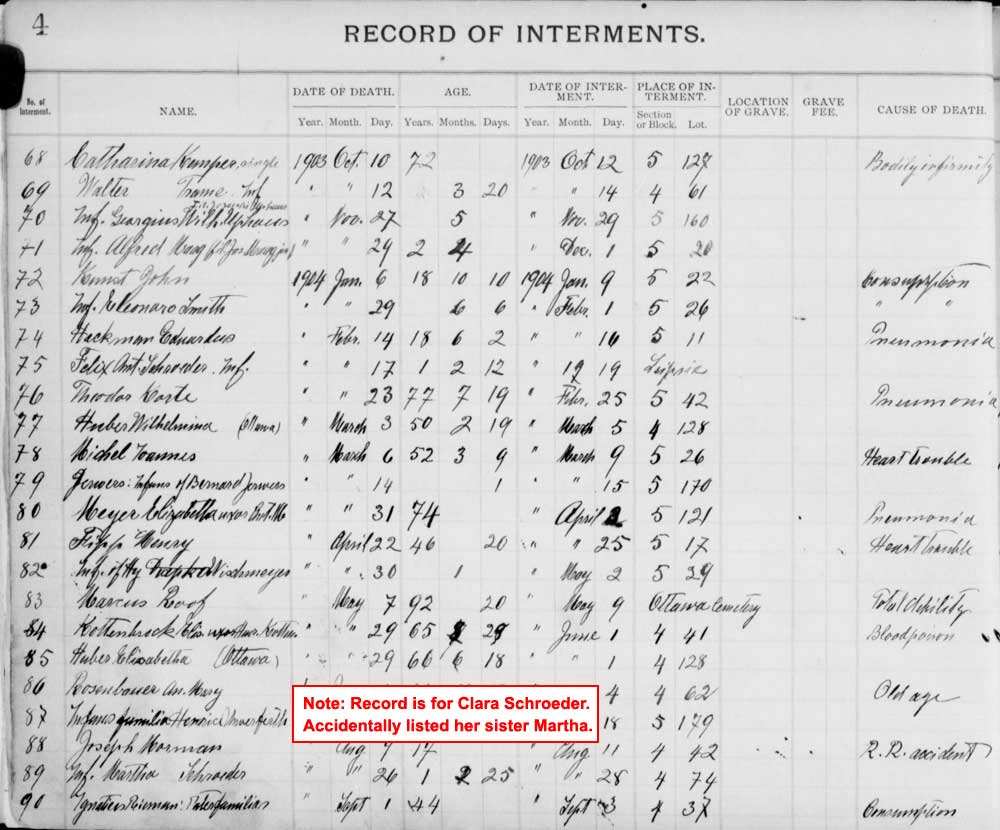 4
RECORD OF INTERMENTS.
No. of Interment. NAME. DATE OF DEATH. AGE. DATE OF INTER-MENT. PLACE OF IN-TERMENT. LOCATION OF GRAVE. GRAVE FEE. CAUSE OF DEATH.
Year. Month. Day. Years. Months. Days. Year. Month. Day. Section or Block. Lot.
68 Catharina Kemper, single 1903 Oct. 10 72 1903 Oct 12 5 127 Bodily infirmity
69 Walter Frame. Inf " " 12 3 20 " " 14 4 61
70 Inf. Georgius Wilh. " Nov. 27 5 " Nov. 29 5 160
71 Inf. Alfred " " 29 2 4 " Dec. 1 5 20
72 Kunst John 1904 Jan. 6 18 10 10 1904 Jan. 9 5 22 Consumption
73 Inf. Eleonaro Smith " " 29 6 6 " Febr. 1 5 26 " "
74 Hackman Eduardus " Febr. 14 18 6 2 " " 16 5 11 Pneumonia
75 Felix Ant. Schroeder. Inf. " " 17 1 2 12 " 19 Leipsic
76 Theodor Korte " " 23 77 7 19 " Febr. 25 5 42 Pneumonia
77 Huber Wilhelmina (Ottawa) " March 3 50 2 19 " March 5 4 128
78 Michel Joannes " March 6 52 3 9 " March 9 5 26 Heart trouble
79 Jerwers: Infans of Bernard Jerwers " " 14 1 " " 15 5 170
80 Meyer Elizabetha uxor " " 31 74 " April 2 5 121 Pneumonia
81 Fipp Henry " April 22 46 20 " " 25 5 17 Heart trouble
82 Inf. of Hy Wischmeyer " " 30 1 " May 2 5 29
83 Marcus Roof " May 7 92 20 " May 9 Ottawa Cemetery Total debility
84 Kottenbrock Elis. uxor " " 29 65 29 " June 1 4 41 Bloodpoison
85 Huber Elisabetha (Ottawa) " " 29 66 6 18 " " 1 4 128
86 Rosenbauer An. Mary 4 4 62 Old age
Note: Record is for Clara Schroeder.
Accidentally listed her sister Martha.
87 Infans familia Henrici 18 5 179
88 Joseph Morman Aug 7 17 Aug. 11 4 42 R. R. accident
89 Inf. Martha Schroeder " " 26 1 2 25 " " 28 4 74
90 Ignatius Rieman: Paterfamilias " Sept 1 44 " Sept 3 4 37 Consumption